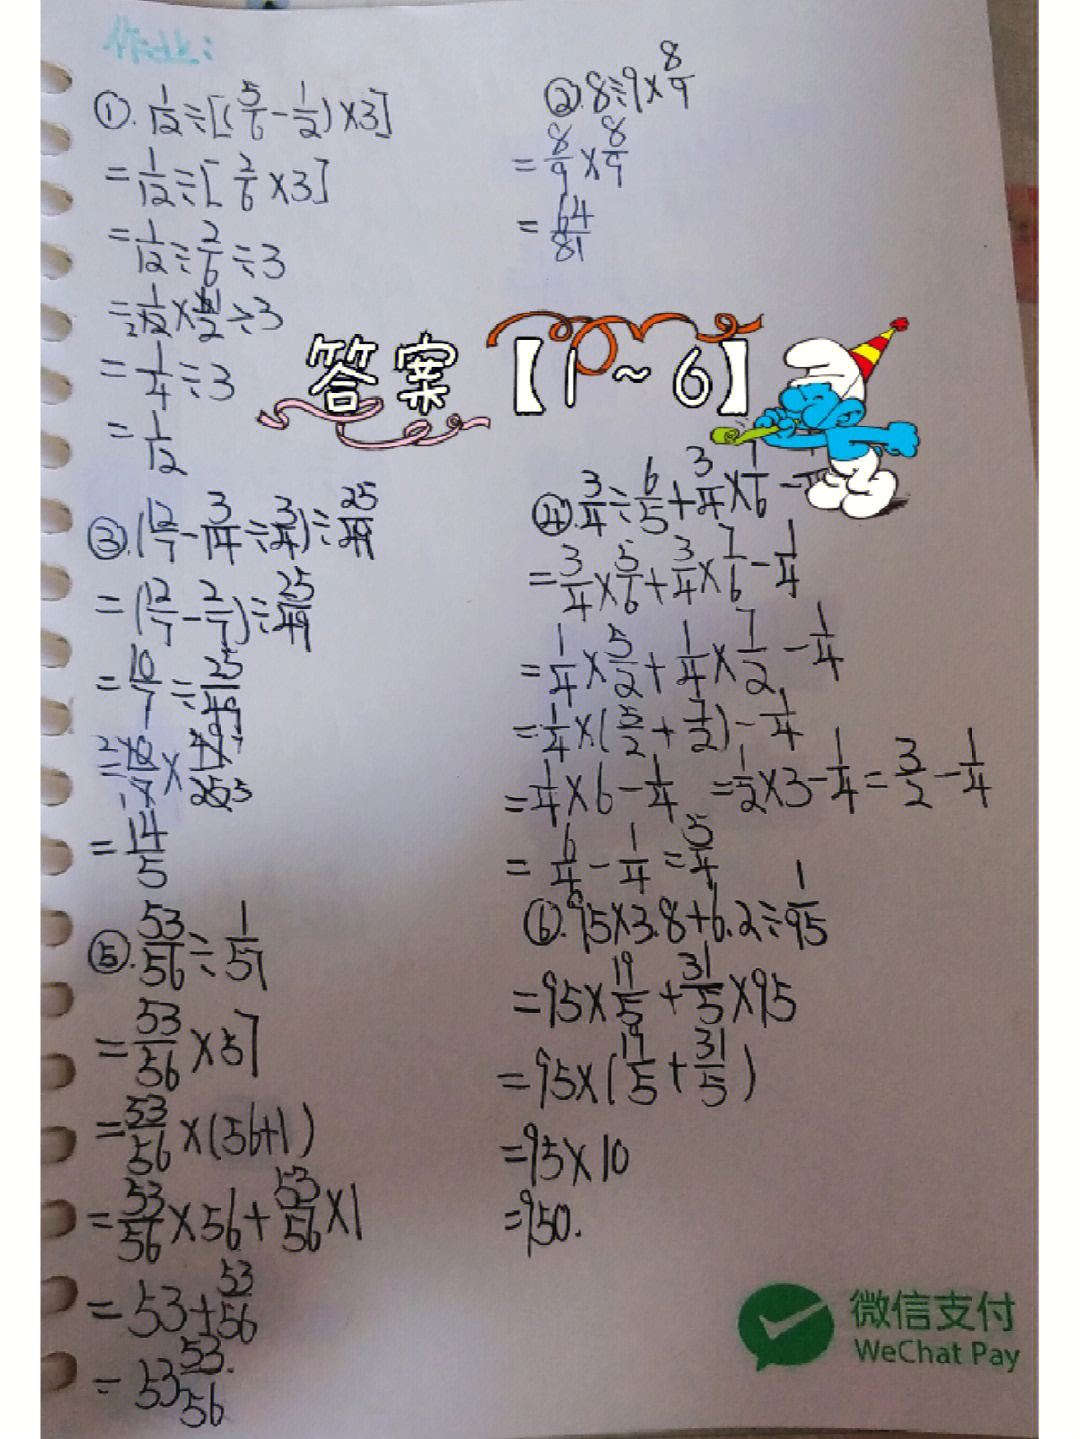 作业:
①. 1/12÷[(5/6-1/2)×3]
=1/12÷[2/6×3]
=1/12÷2/6÷3
÷3
=1/4÷3
=1/12
②. 8÷9×8/9
=8/9×8/9
=64/81
答案【1~6】
③. (12/7-3/14÷3/4)÷25/49
=(12/7-2/7)÷25/49
=10/7÷25/49
=10/7×49/25
=14/5
④. 3/4÷6/5+3/4×7/6-
=3/4×5/6+3/4×7/6-1/4
=1/4×5/2+1/4×7/2-1/4
=1/4×(5/2+7/2)-1/4
=1/4×6-1/4 =1/2×3-1/4=3/2-1/4
=6/4-1/4=5/4
⑤. 53/56÷1/57
=53/56×57
=53/56×(56+1)
=53/56×56+53/56×1
=53+53/56
=53 53/56.
⑥. 95×3.8+6.2÷1/95
=95×19/5+31/5×95
=95×(19/5+31/5)
=95×10
=950.
微信支付
WeChat Pay